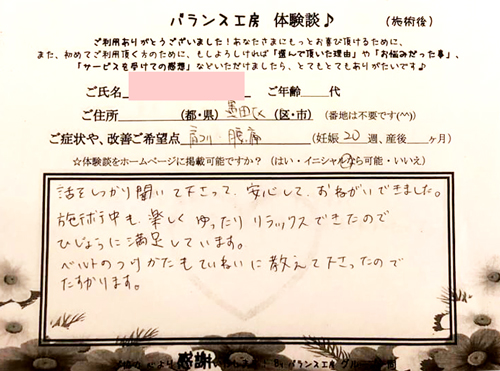 バランス工房 体験談♪ (施術後)
ご利用ありがとうございました！あなたさまにもっとお喜び頂けるために、
また、初めてご利用頂く方のために、もしよろしければ「選んで頂いた理由」や「お悩みだった事」、
「サービスを受けての感想」などいただけましたら、とてもとてもありがたいです♪
ご氏名 ご年齢 代
ご住所 (都・県) 墨田区 (区・市) (番地は不要です(^^))
ご症状や、改善ご希望点 肩コリ・腰痛 (妊娠 20 週、産後 ヶ月)
☆体験談をホームページに掲載可能ですか？ (はい・イニシャルなら可能・いいえ)
話をしっかり聞いて下さって、安心して、おねがいできました。
施術中も、楽しくゆったりリラックスできたので
ひじょうに満足しています。
ベルトのつけかたもていねいに教えて下さったので
たすかります。
感謝 By バランス工房グループ